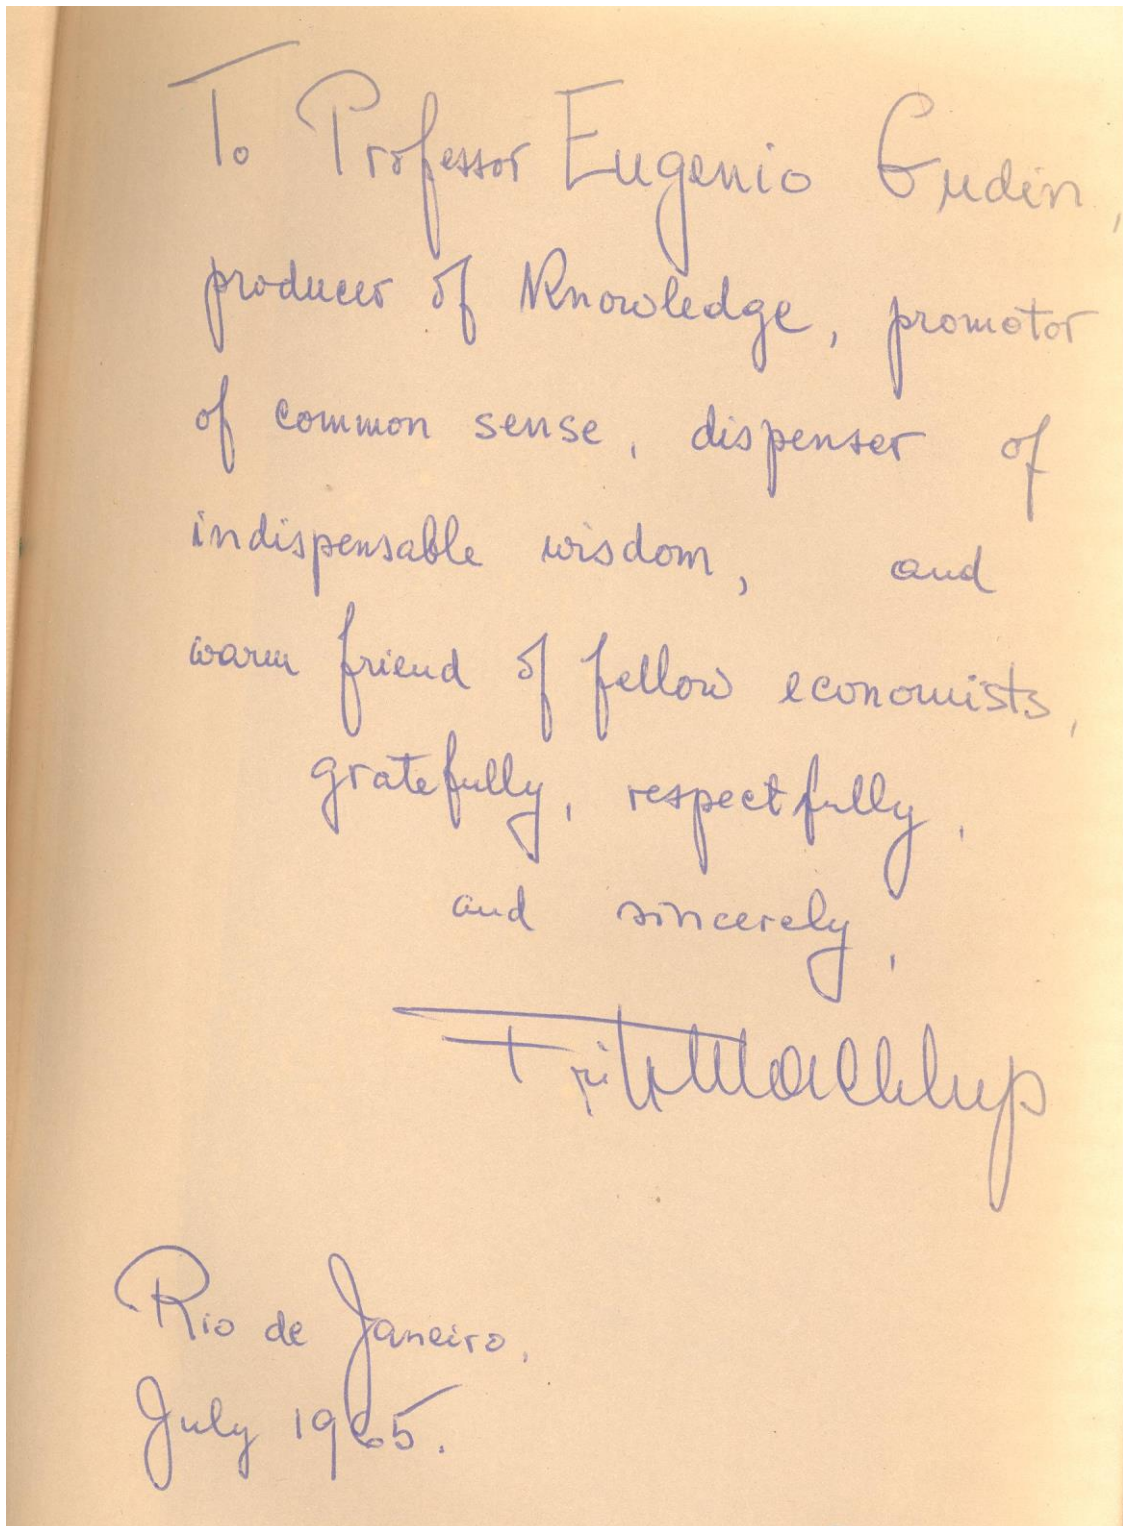 To Professor Eugenio Gudin,
producer of Knowledge, promotor
of common sense, dispenser of
indispensable wisdom, and
warm friend of fellow economists,
gratefully, respectfully,
and sincerely,
Fritz Machlup
Rio de Janeiro,
July 1965.